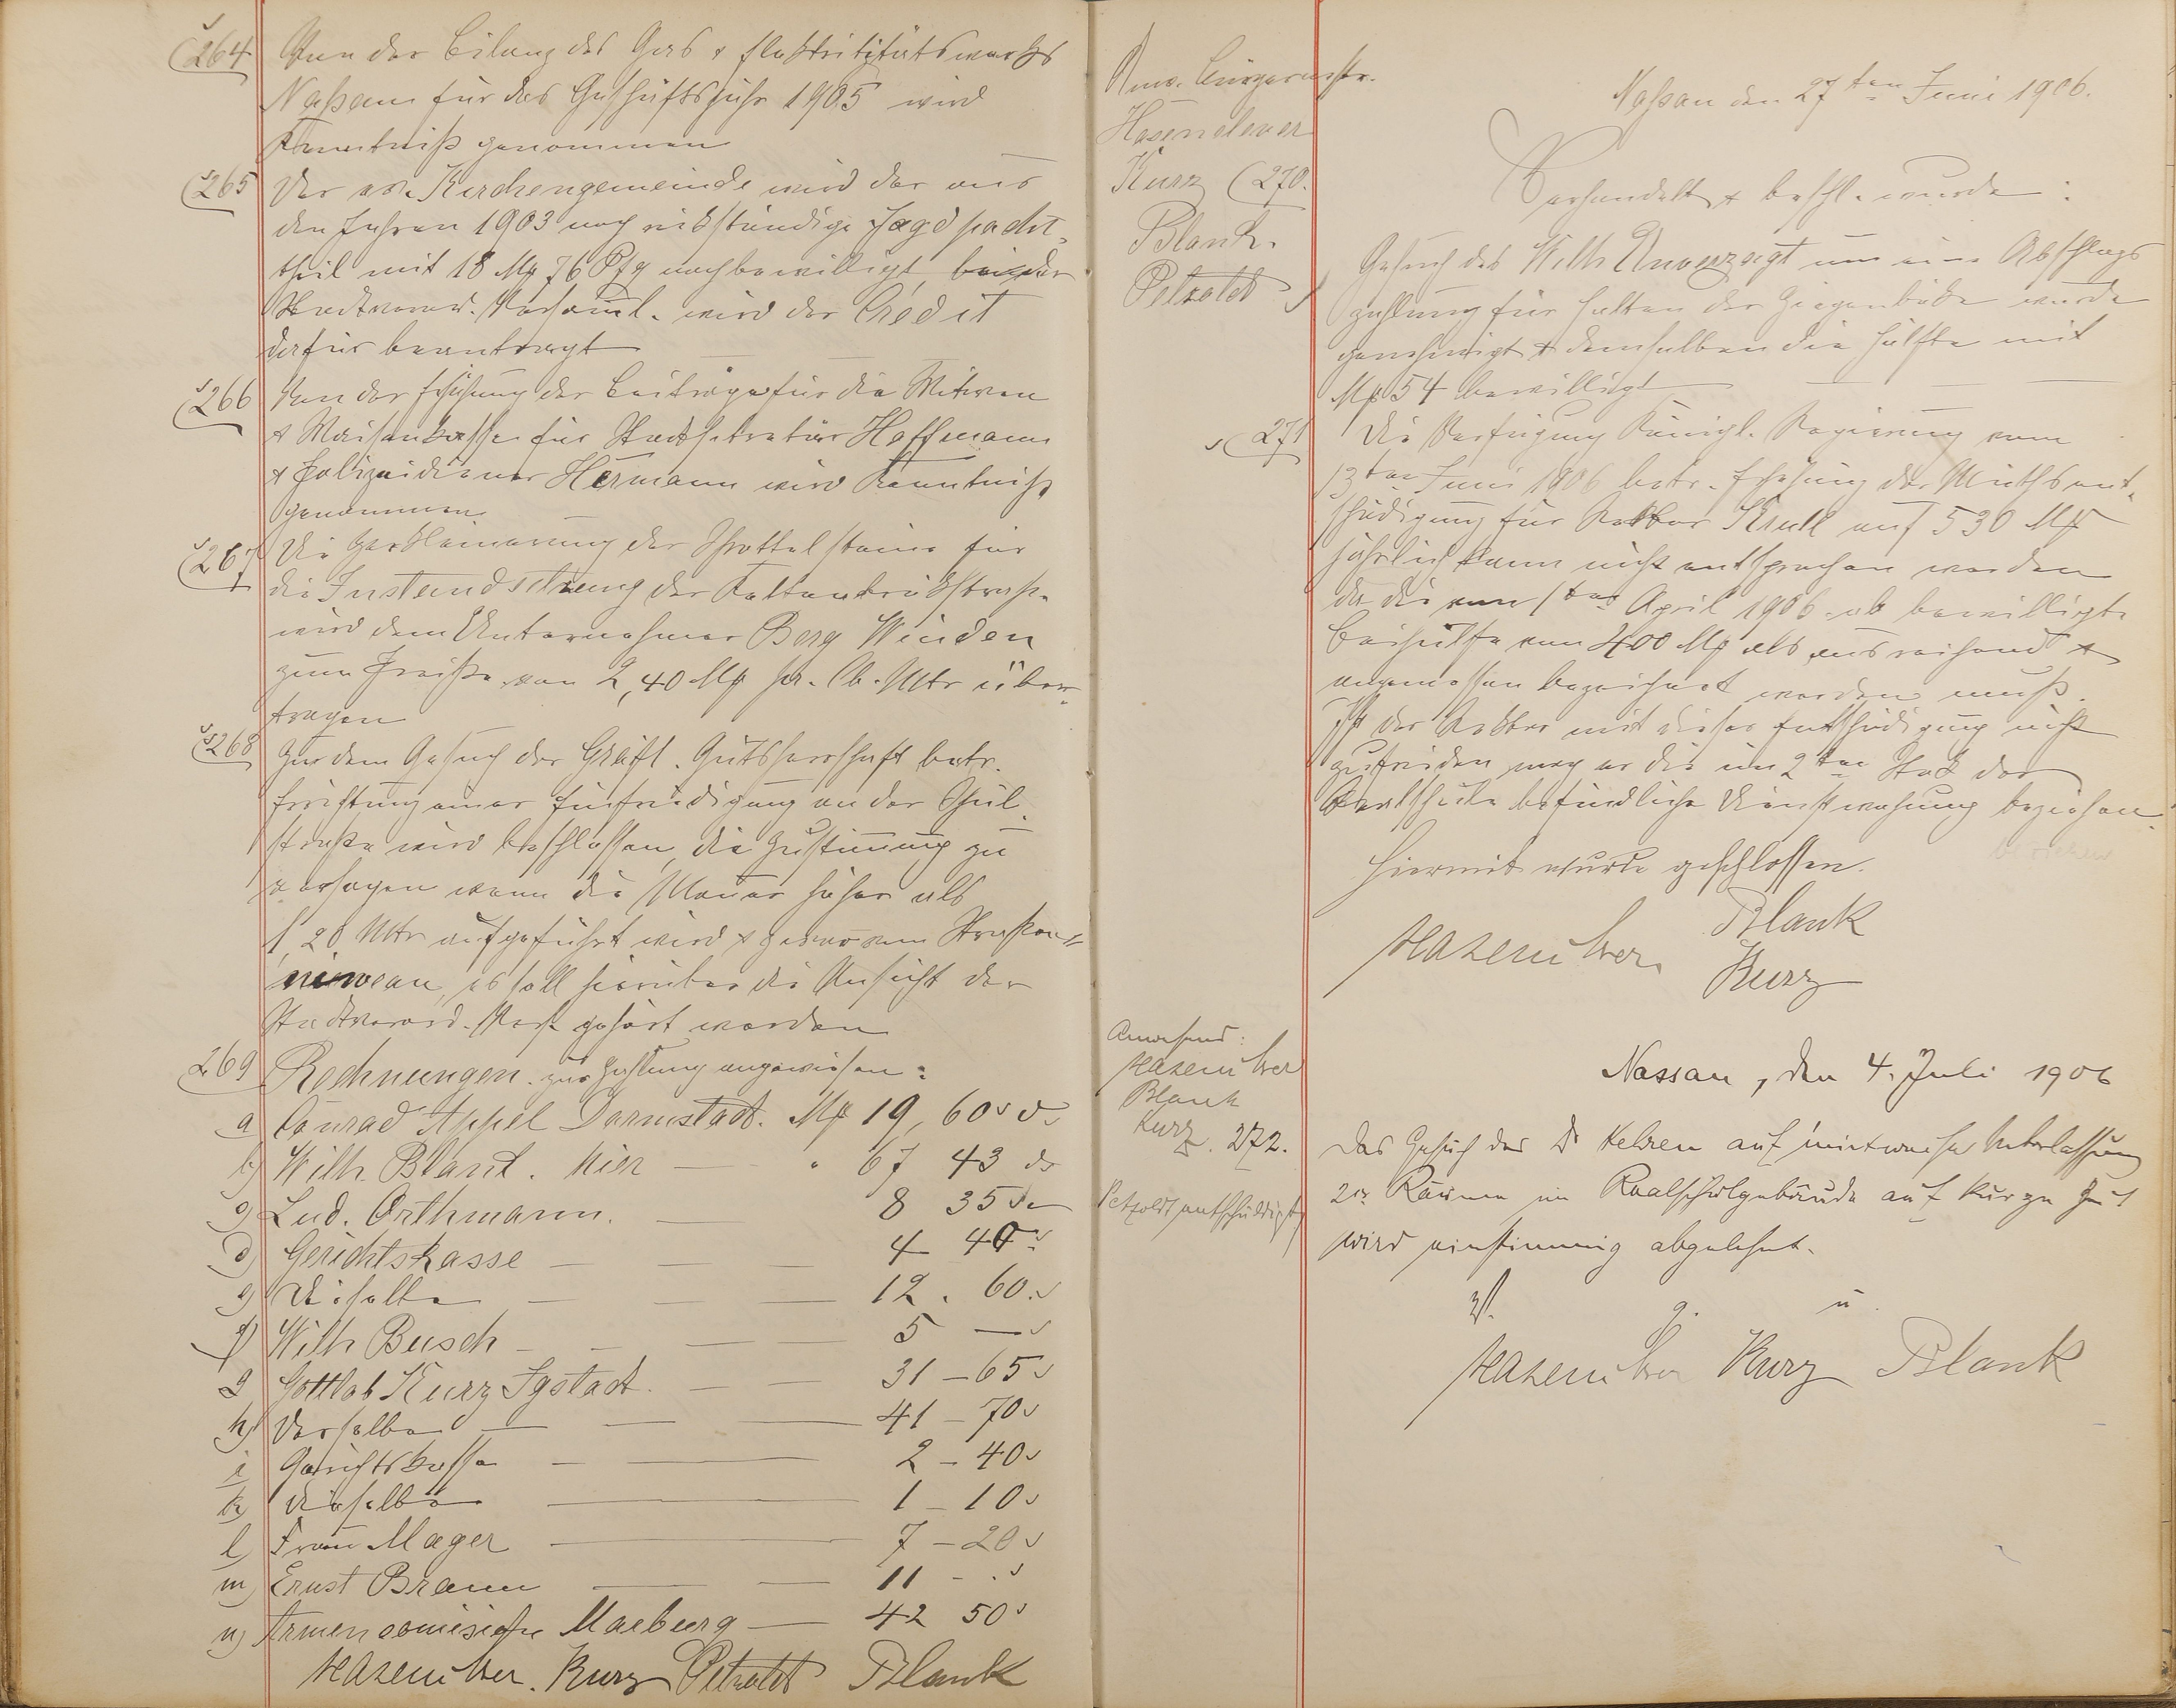 264 Von der Bilanz des Gas & Elektrizitätswerks
Naßau für das Geschäftsjahr 1905 wird
Kenntniß genommen
265 Der ev. Kirchengemeinde wird der aus
den Jahren 1903 noch rückständige Jagdpacht-
theil mit 18 Mk 76 Pfg nachbewilligt, bei der
Stadtverord. Versaml. wird der Credit
dafür beantragt
266 Von der Erhöhung der Beiträge für die Witwen
& Waisenkasse für Stadtsekretär Hoffmann
& Polizeidiener Hermann wird Kenntniß
genommen
267 Die Zerkleinerung der Schottelsteine für
die Instandsetzung der Kaltenbachstraße
wird dem Unternehmer Berg Winden
zum Preiße von 2,40 Mk pr. Cb. Mtr über-
tragen
268 Zu dem Gesuch der Gräfl. Gutsherrschaft betr.
Errichtung einer Einfriedigung an der Schul-
straße wird beschlossen, die Zustimmung zu
versagen wenn die Mauer höher als
1,20 Mtr aufgeführt wird & zwar vom Straßen-
niveau, es soll hierüber die Ansicht der
Stadtverord. Vers. gehört werden
269 Rechnungen zur Zahlung angewiesen:
a Conrad Appel Darmstadt. Mk 19,60
b) Wilh. Blank. hier — " 67 43
c) Lud. Orthmann. — 8 35
d) Gerichtskasse — — — 4 40
e) Dieselbe — — — 12. 60.
f) Wilh Busch — — — 5 —
g Gottlob Kurz Igstadt. — — 31 — 65
h) Derselbe — — — 41 — 70
i Gerichtskasse — — 2 — 40
k) Dieselbe — 1 — 10
l) Frau Mager — 7 — 20
m) Ernst Braun — — 11 — .
n) Armen Marburg — 42 50
Hasenclever. Kurz Petzoldt Blank
Anw. Bürgermstr.
Hasenclever
Kurz
Blank.
Petzoldt
Naßau den 27ten Juni 1906.
Verhandelt & beschl. wurde:
270. Gesuch des Wilh Unverzagt um eine Abschlags
zahlung für Halten der Ziegenböcke wurde
genehmigt & demselben die Hälfte mit
Mk 54 bewilligt
271 Die Verfügung Königl. Regierung vom
13ten Juni 1906 betr. Erhöhung der Miethsent-
schädigung für Rektor Krull auf 530 Mk
jährlich kann nicht entsprochen werden
da die vom 1ten April 1906 ab bewilligte
Beihülfe von 400 Mk als ausreichend &
angemessen bezeichnet werden muß.
Ist der Rektor mit dieser Entschädigung nicht
zufrieden mag er die im 2ten Stock der
Realschule befindliche Dienstwohnung beziehen.
Hiermit wurde geschlossen.
Hasenclever. Blank
Kurz
Anwesend:
Hasenclever
Blank
Kurz
Petzoldt entschuldigt
Nassau, den 4. Juli 1906
272. Das Gesuch des Dr auf mietweise Ueberlassung
2er Räume im Realschulgebäude auf kurze Zeit
wird einstimmig abgelehnt.
v. g. u.
Hasenclever Kurz Blank